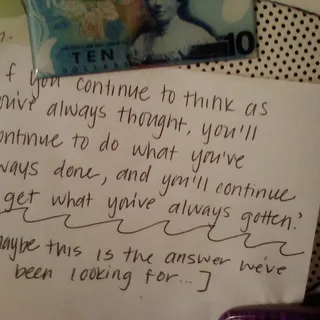 TEN
10
f you continue to think as
ou've always thought, you'll
ontinue to do what you've
ways done, and you'll continue
get what you've always gotten."
aybe this is the answer we've
been looking for...]